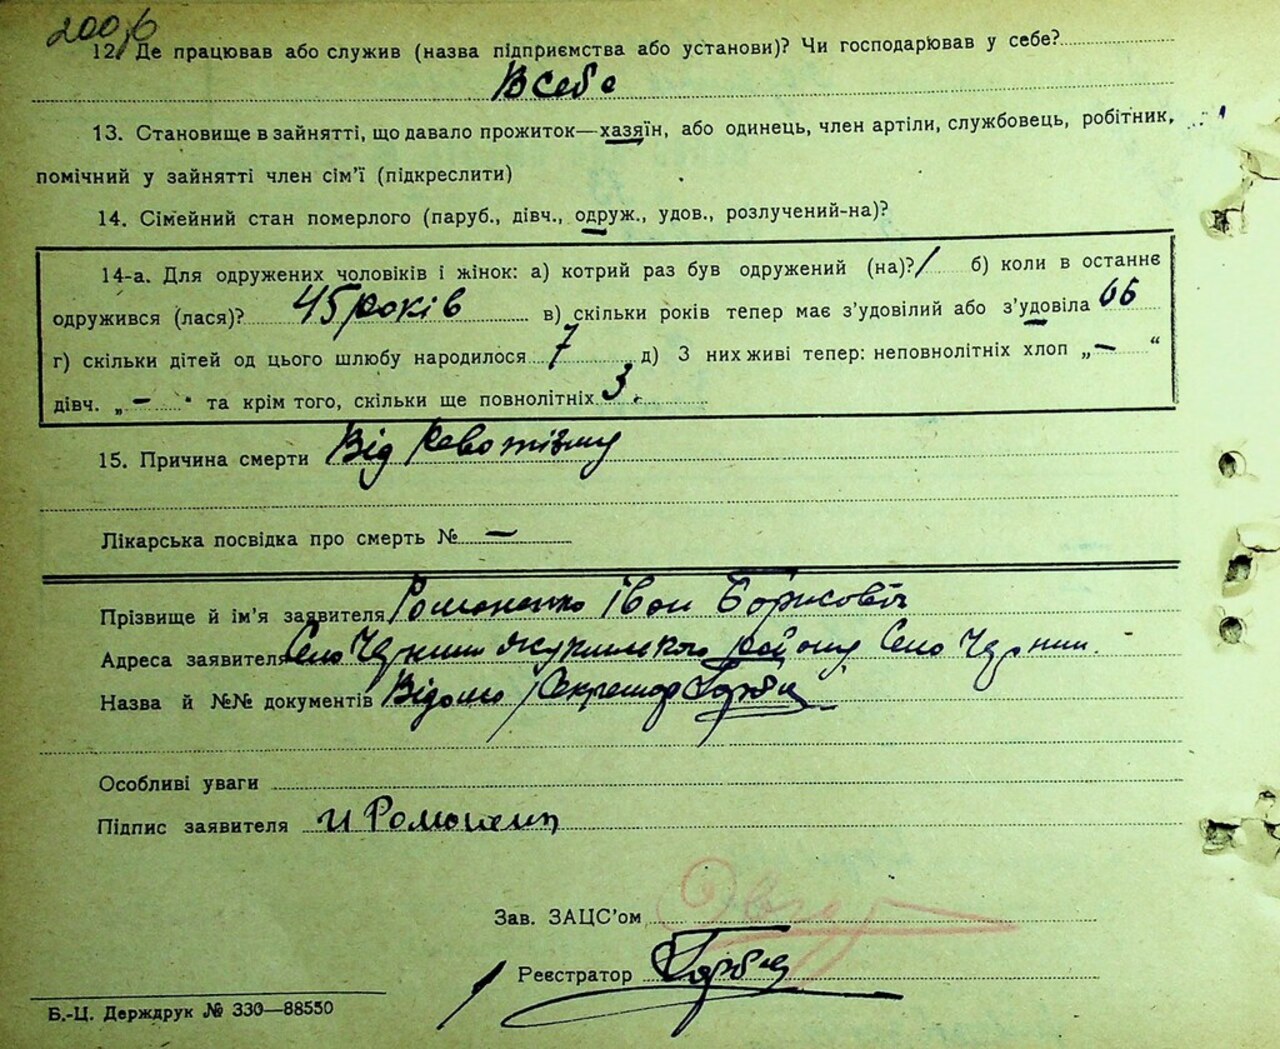 200
12. Де працював або служив (назва підприємства або установи)? Чи господарював у себе?
В себе
13. Становище в зайнятті, що давало прожиток—хазяїн, або одинець, член артіли, службовець, робітник,
помічний у зайнятті член сім’ї (підкреслити)
14. Сімейний стан померлого (паруб., дівч., одруж., удов., розлучений-на)?
14-а. Для одружених чоловіків і жінок: а) котрий раз був одружений (на)? / б) коли в останнє
одружився (лася)? 45 років в) скільки років тепер має з’удовілий або з’удовіла 66
г) скільки дітей од цього шлюбу народилося 7 д) З них живі тепер: неповнолітніх хлоп „ — “
дівч. „ — “ та крім того, скільки ще повнолітніх 3
15. Причина смерти Від Ревотізму
Лікарська посвідка про смерть № —
Прізвище й ім’я заявителя Романенко Іван Борисовіч
Адреса заявителя Село району Село
Назва й №№ документів Відомо Секретар
Особливі уваги
Підпис заявителя И Романенк
Зав. ЗАЦС’ом
Реєстратор
Б.-Ц. Держдрук № 330—88550